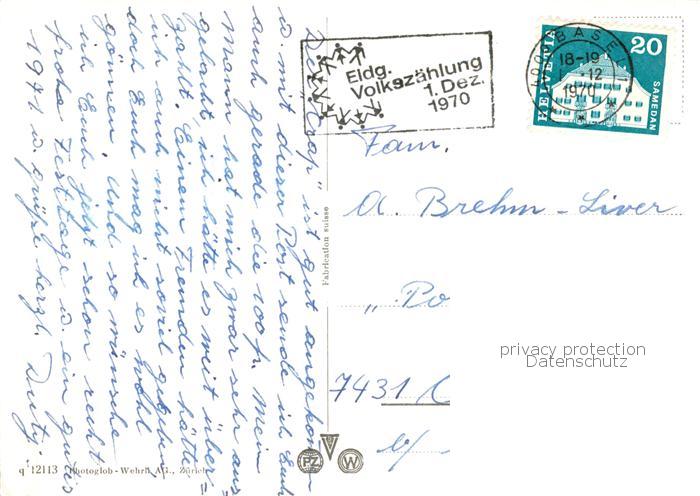 Der „Trap" ist gut angekom-
w. mit dieser Post sende ich Euch
auch gerade die 100 fr. Mein
Mann hat mich zwar sehr aus
gelacht, ich hätte es weit über=
zahlt. Einem Fremden hätte
ich auch nicht soviel gegeben
doch Euch mag ich es wohl
gönnen. Und so wünsche
ich Euch jetzt schon recht
frohe Festtage u. ein gutes
1971 u. grüße herzl.
Eidg.
Volkszählung
1. Dez.
1970
4000 BASEL
18-19
12
1970
HELVETIA
20
SAMEDAN
Fam.
A. Brehm-Liver
„Po
7431
b/
privacy protection
Datenschutz
Fabrication suisse
q 12113 Photoglob-Wehrli A.G., Zürich
PZ
W